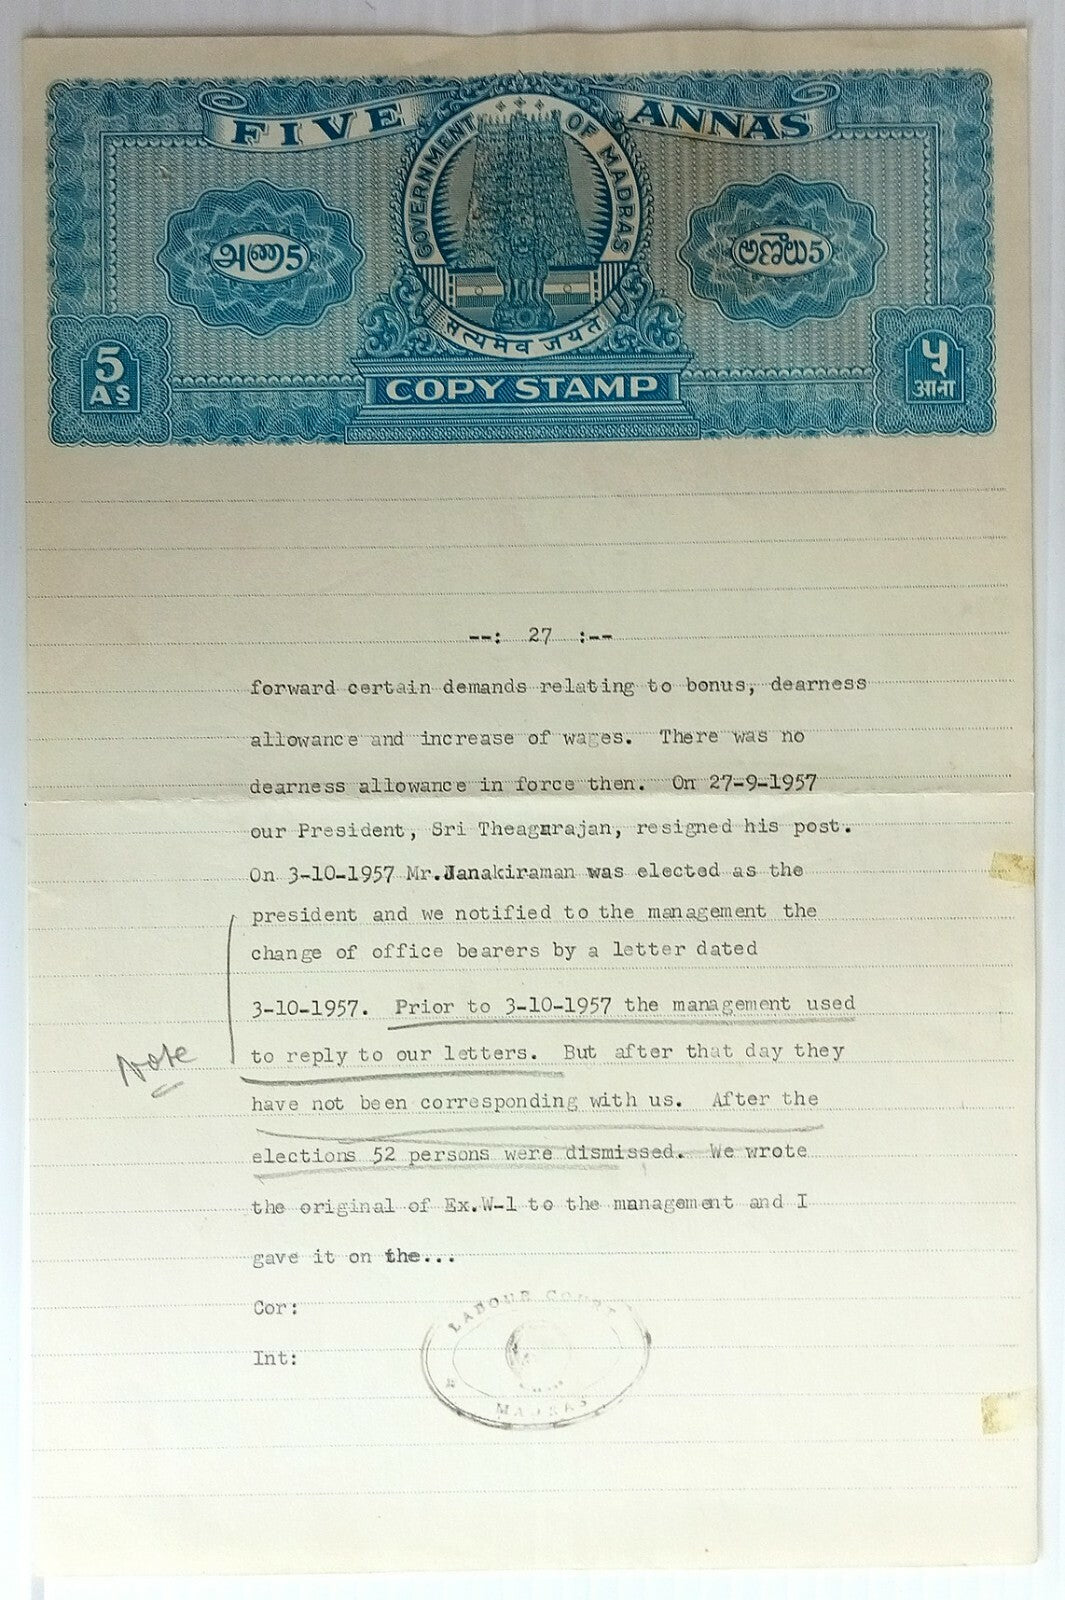 FIVE ANNAS
GOVERNMENT OF MADRAS
அணா 5
అణాలు 5
सत्यमेव जयते
5
AS
५
आना
COPY STAMP
--: 27 :--
forward certain demands relating to bonus, dearness
allowance and increase of wages. There was no
dearness allowance in force then. On 27-9-1957
our President, Sri Theagurajan, resigned his post.
On 3-10-1957 Mr.Janakiraman was elected as the
president and we notified to the management the
change of office bearers by a letter dated
3-10-1957. Prior to 3-10-1957 the management used
Note
to reply to our letters. But after that day they
have not been corresponding with us. After the
elections 52 persons were dismissed. We wrote
the original of Ex.W-1 to the management and I
gave it on the...
Cor:
Int:
LABOUR COURT
MADRAS